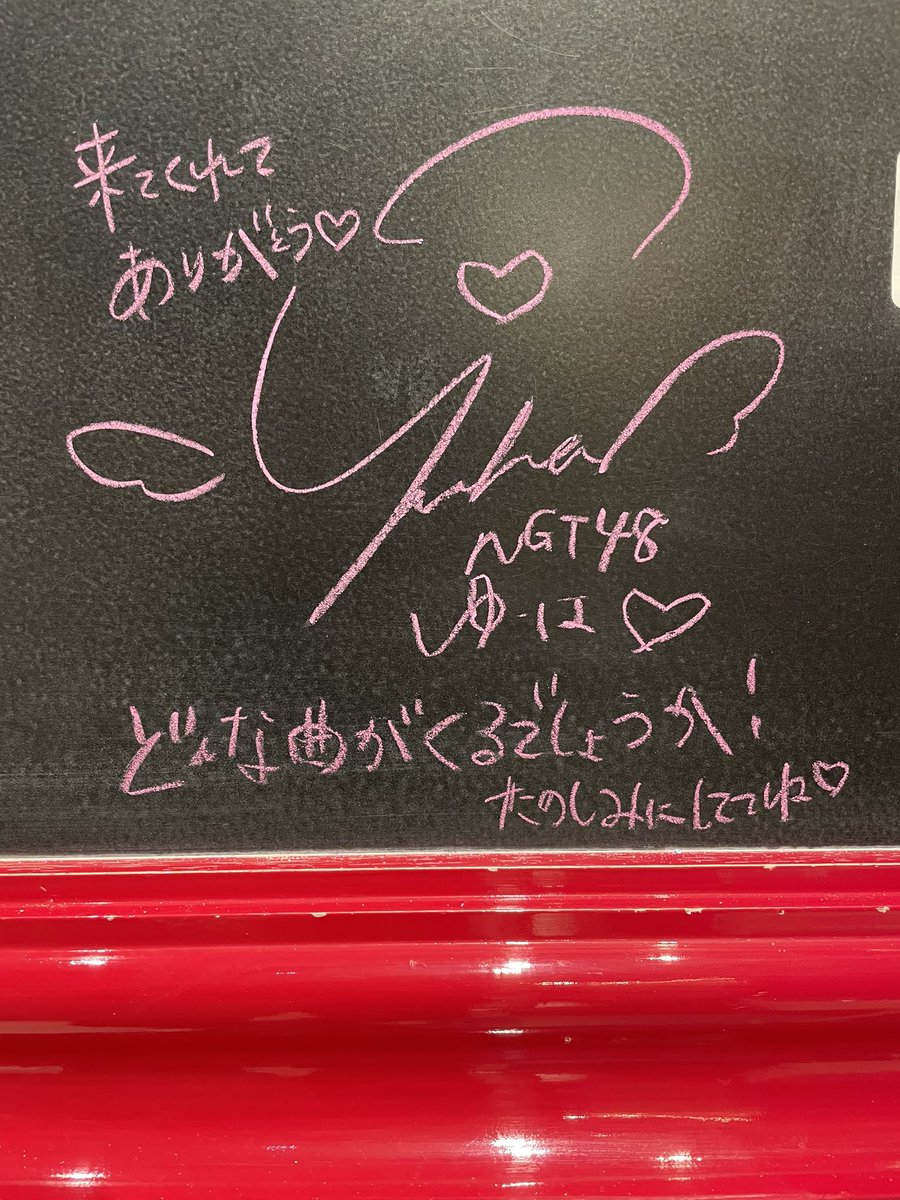 来てくれて
ありがとう♡
Yuha
NGT48
ゆーは♡
どんな曲がくるでしょうか!
たのしみにしててね♡